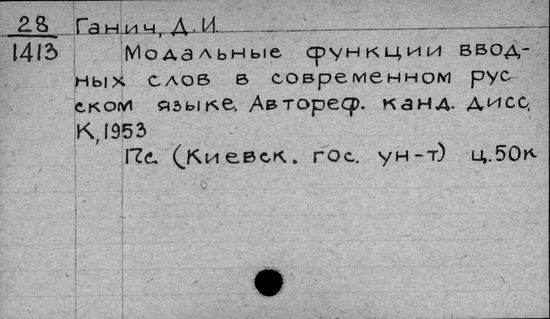 28 Ганич, Д.И.
1413 Модальные функции ввод-
ных слов в современном рус
ском языке. Автореф. канд. дисс.
К, 1953
17с. (Киевск. гос. ун-т) ц.50к